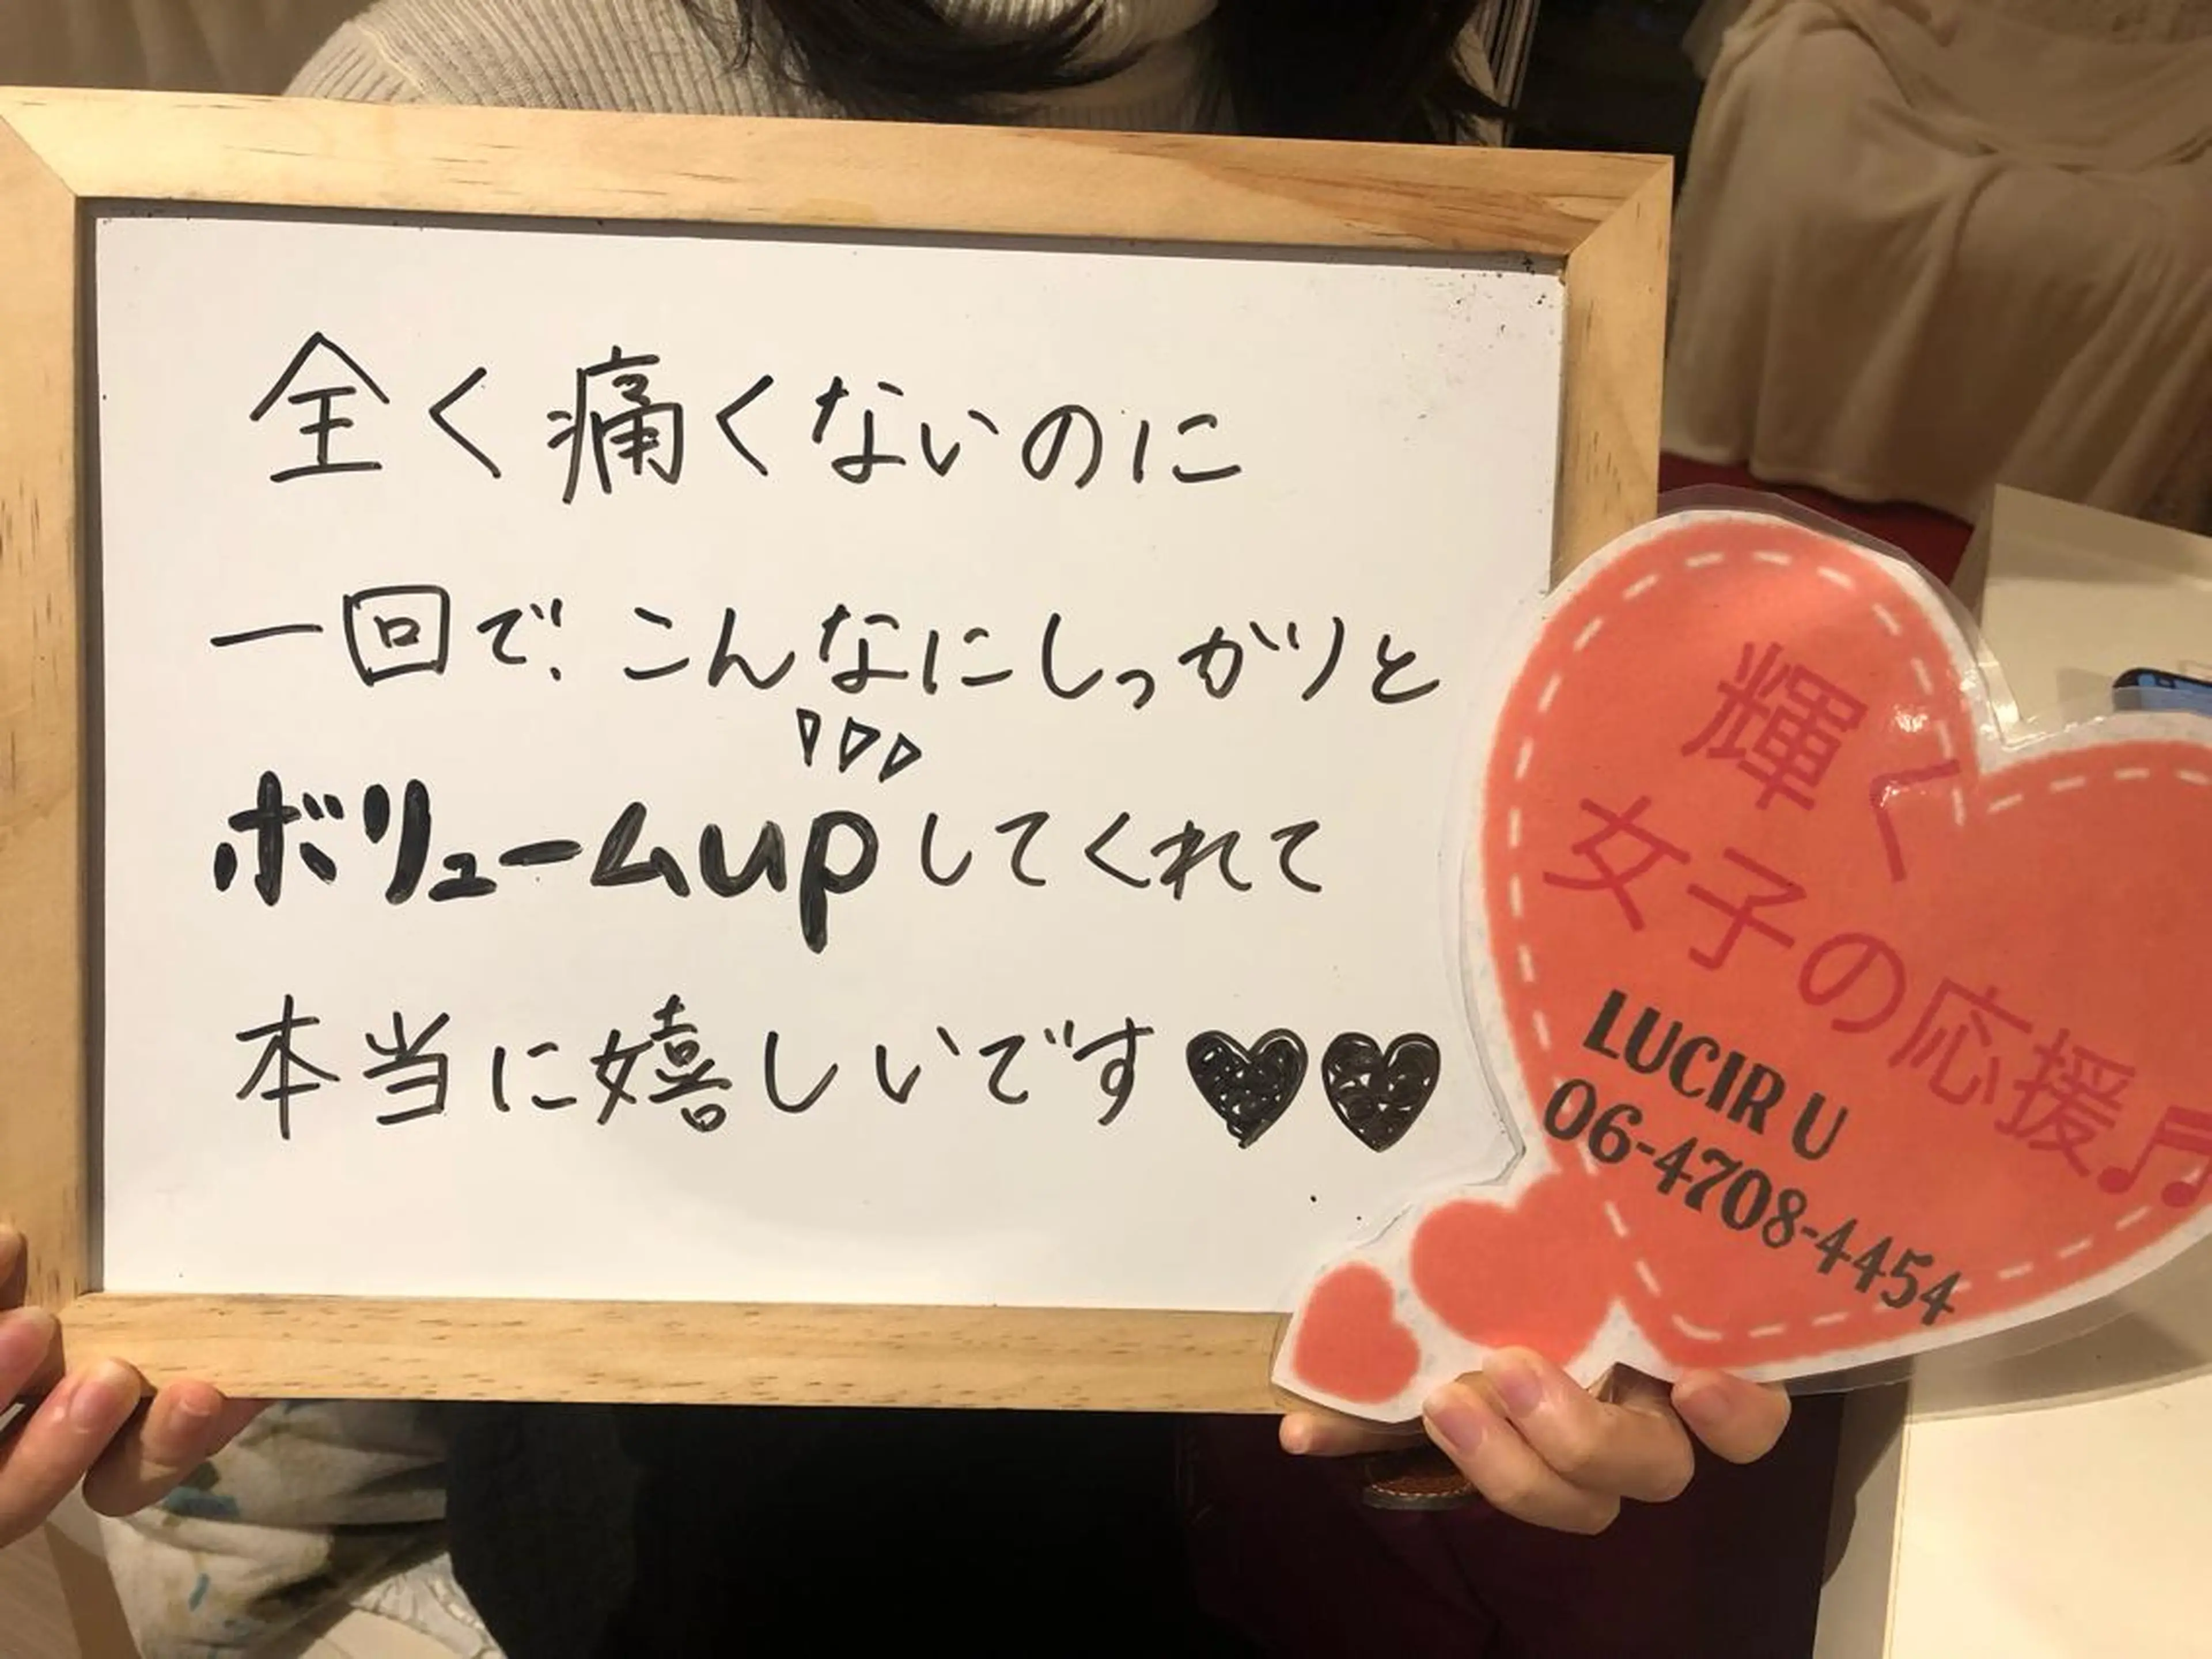 全く痛くないのに
一回で、こんなにしっかりと
ボリュームupしてくれて
本当に嬉しいです♥♥
輝く
女子の応援♬
LUCIR U
06-4708-4454